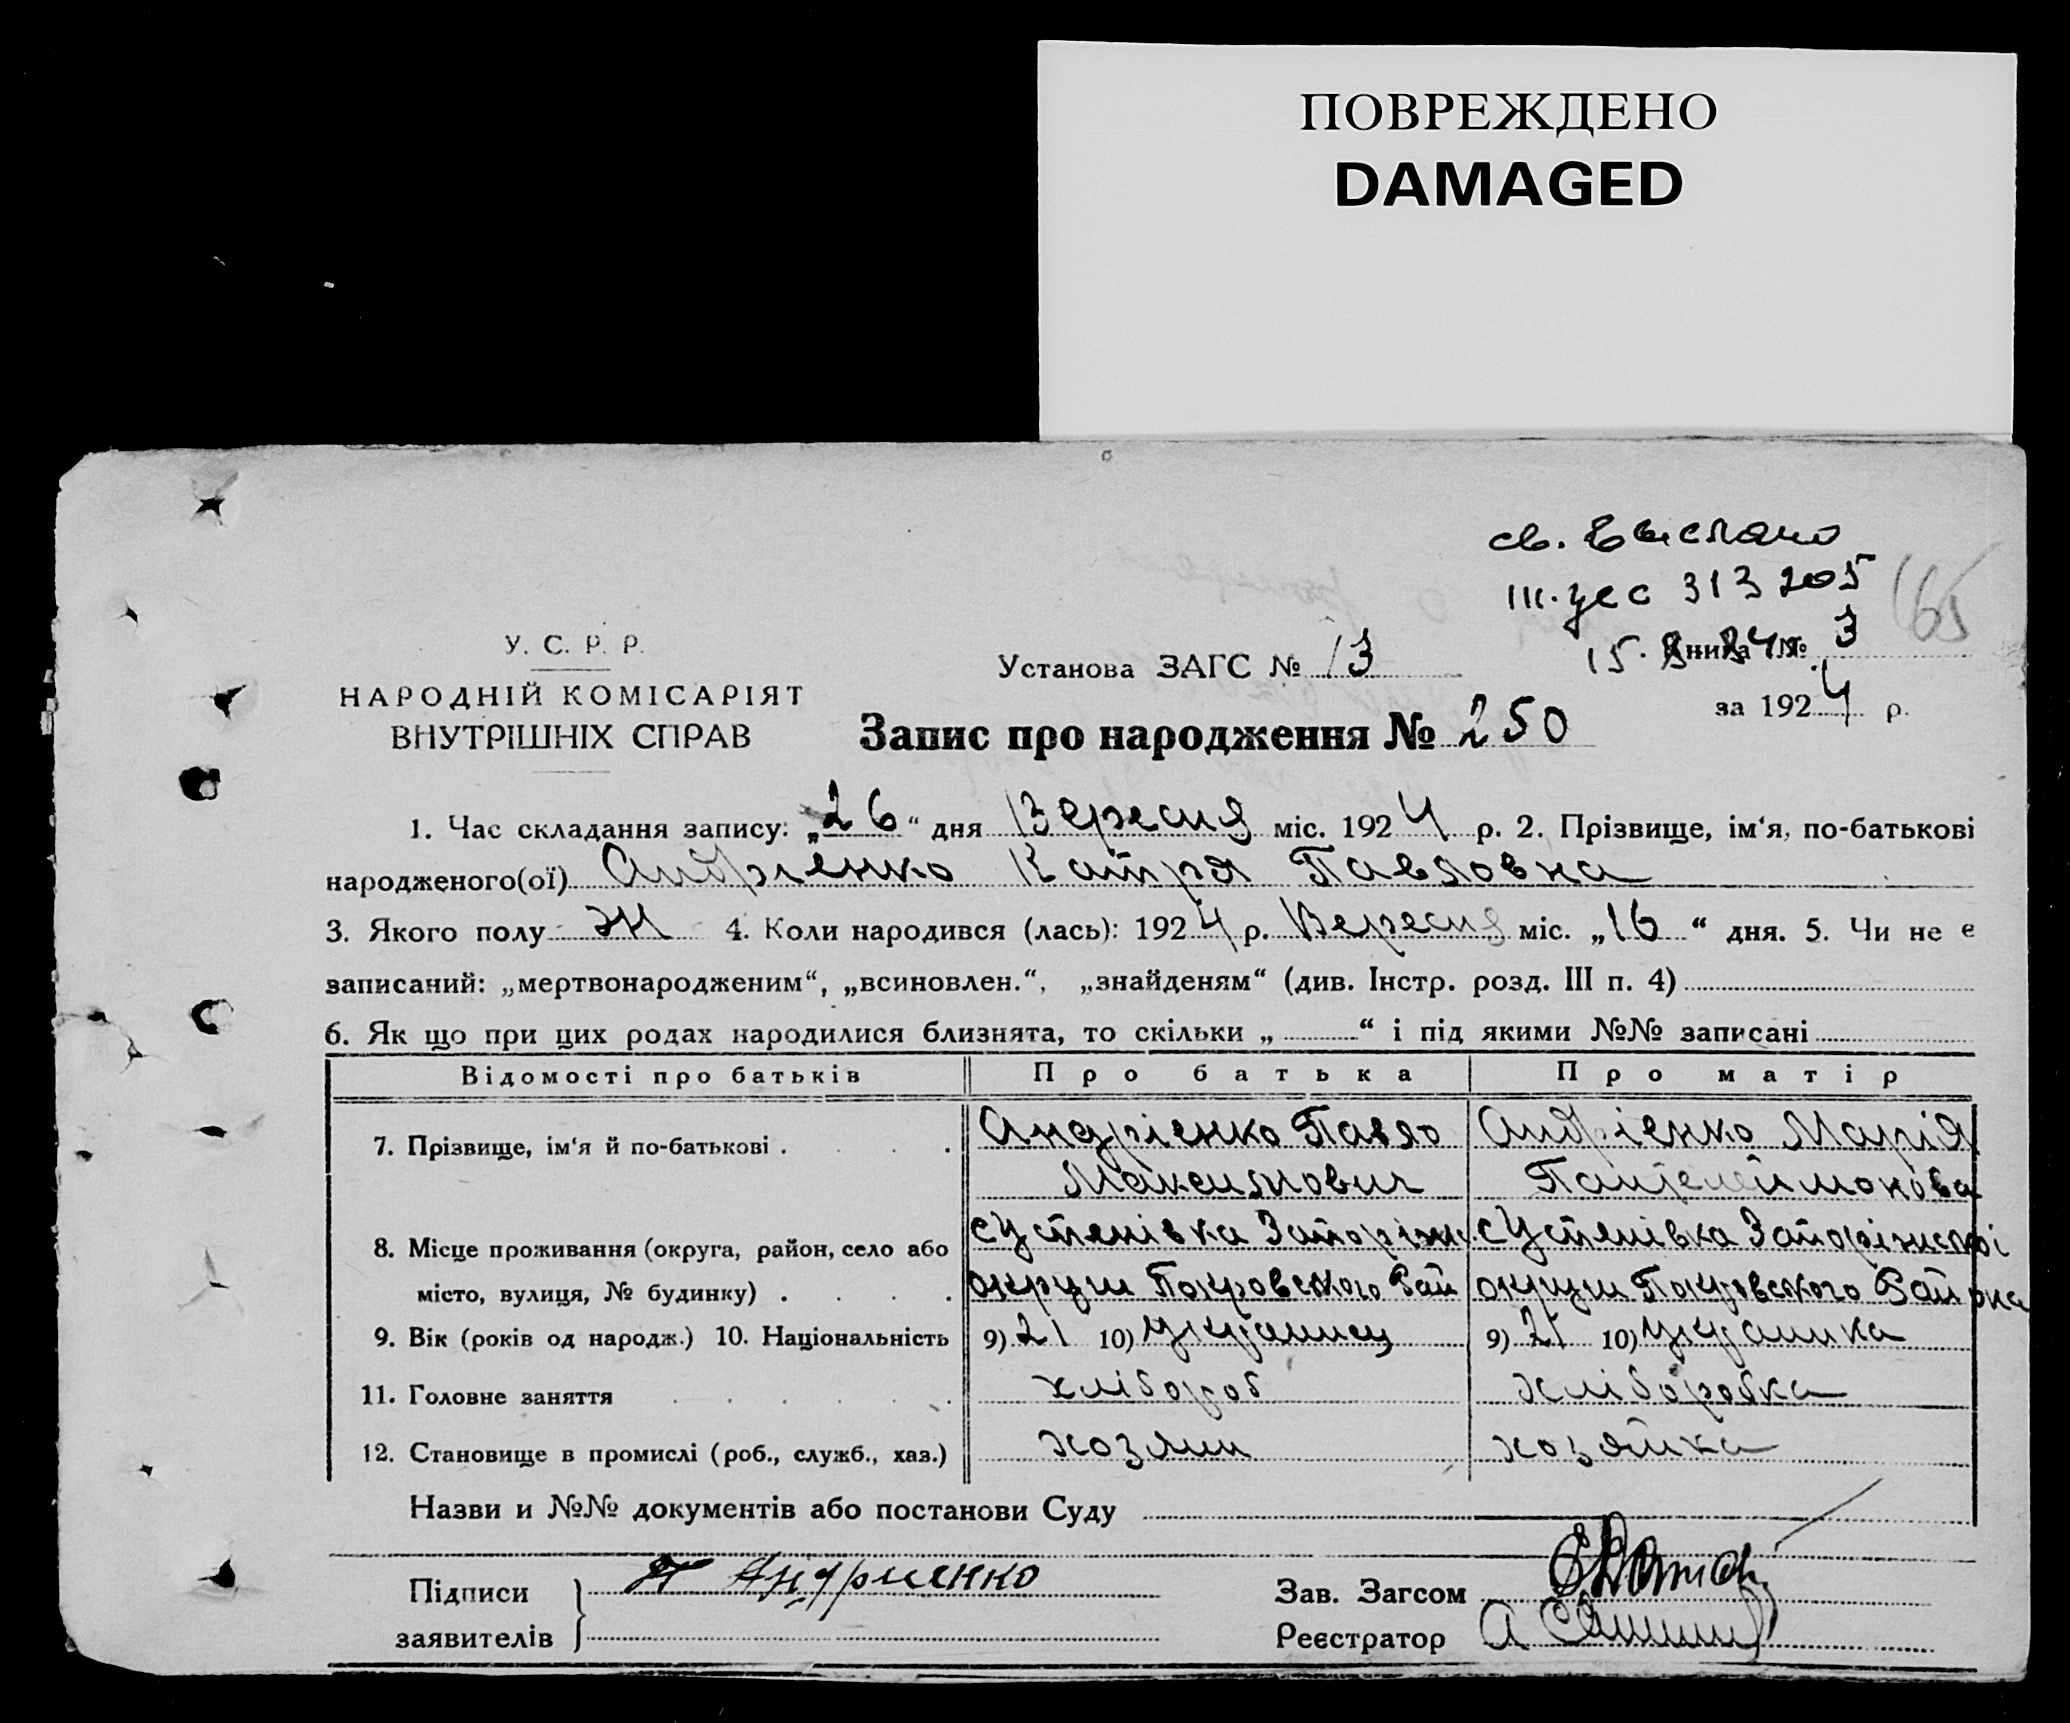 ПОВРЕЖДЕНО
DAMAGED
св. выслано
III. УЕС 313205
165
15.
У. С. Р. Р.
НАРОДНІЙ КОМІСАРІЯТ
ВНУТРІШНІХ СПРАВ
Установа ЗАГС № 13
Книга № 3
за 1924 р.
Запис про народження № 250
1. Час складання запису: „26“ дня Вересня міс. 1924 р. 2. Прізвище, ім‘я, по-батькові
народженого(ої) Андрієнко Катря Павловна
3. Якого полу Ж 4. Коли народився (лась): 1924 р. Вересня міс. „16“ дня. 5. Чи не є
записаний: „мертвонародженим“, „всиновлен.“, „знайденям“ (див. Інстр. розд. III п. 4)
6. Як що при цих родах народилися близнята, то скільки „ “ і під якими №№ записані
Відомості про батьків Про батька Про матір
7. Прізвище, ім‘я й по-батькові . . . . Андрієнко Павло Андрієнко Марія
Максимович Пантелеймонова
8. Місце проживання (округа, район, село або с Устенівка Запоріж. с Устенівка Запоріжської
місто, вулиця, № будинку) . . . . округи Покровського Рай округи Покровського Району
9. Вік (років од народж.) 10. Національність 9) 21 10) Українец 9) 21 10) Українка
11. Головне заняття . . . . . . хлібороб хліборобка
12. Становище в промислі (роб., служб., хаз.) хозяин хозяйка
Назви и №№ документів або постанови Суду
Підписи
заявителів
П Андриенко
Зав. Загсом
Реєстратор